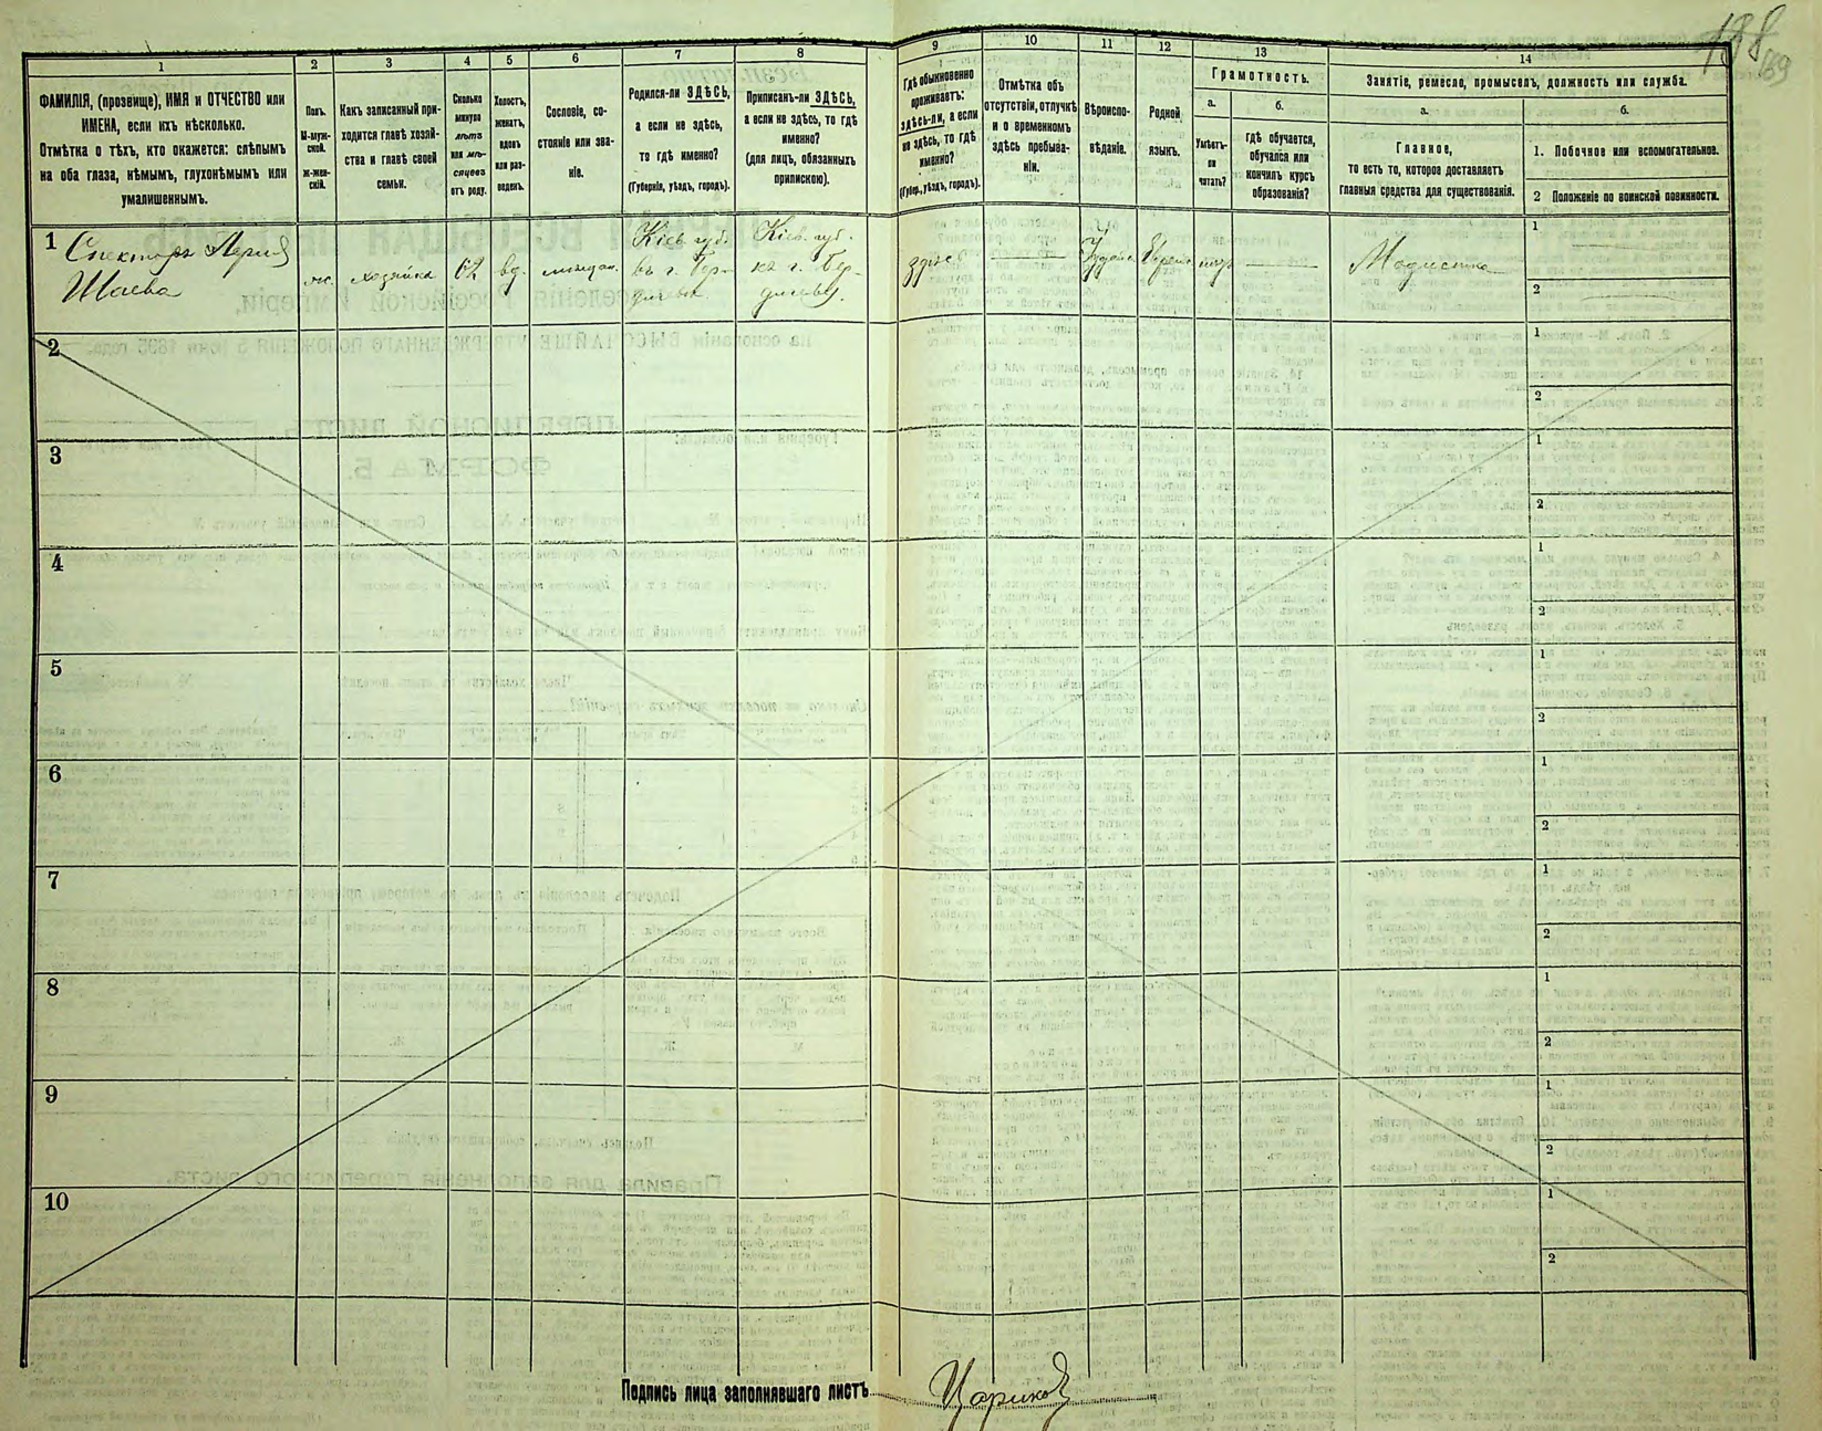 188
189
1
2
3
4
5
6
7
8
9
10
11
12
13
14
ФАМИЛІЯ, (прозвище), ИМЯ и ОТЧЕСТВО или
ИМЕНА, если ихъ нѣсколько.
Отмѣтка о тѣхъ, кто окажется: слѣпымъ
на оба глаза, нѣмымъ, глухонѣмымъ или
умалишеннымъ.
Полъ.
М-муж-
ской.
Ж-жен-
скій.
Какъ записанный при-
ходится главѣ хозяй-
ства и главѣ своей
семьи.
Сколько
минуло
лѣтъ
или мѣ-
сяцевъ
отъ роду.
Холостъ,
женатъ,
вдовъ
или раз-
веденъ.
Сословіе, со-
стояніе или зва-
ніе.
Родился-ли ЗДѢСЬ,
а если не здѣсь,
то гдѣ именно?
(Губернія, уѣздъ, городъ).
Приписанъ-ли ЗДѢСЬ,
а если не здѣсь, то гдѣ
именно?
(для лицъ, обязанныхъ
припискою).
Гдѣ обыкновенно
проживаетъ:
здѣсь-ли, а если
не здѣсь, то гдѣ
именно?
(Губер., уѣздъ, городъ).
Отмѣтка объ
отсутствіи, отлучкѣ
и о временномъ
здѣсь пребыва-
ніи.
Вѣроиспо-
вѣданіе.
Родной
языкъ.
Грамотность.
а.
Умѣетъ-
ли
читать?
б.
гдѣ обучается,
обучался или
кончилъ курсъ
образованія?
Занятіе, ремесло, промыселъ, должность или служба.
а.
Главное,
то есть то, которое доставляетъ
главныя средства для существованія.
б.
1. Побочное или вспомогательное.
2 Положеніе по воинской повинности.
1
Спекторъ
Шаева
ж.
хозяйка
62
вд.
мещан.
Кіев. губ.
въ г. Бер-
дичевѣ
Кіев. губ.
къ г. Бер-
дичеву.
здѣсь
Іудейс
Еврейс
Модистка
1
2
2
1
2
3
1
2
4
1
2
5
1
2
6
1
2
7
1
2
8
1
2
9
1
2
10
1
2
Подпись лица заполнявшаго листъ